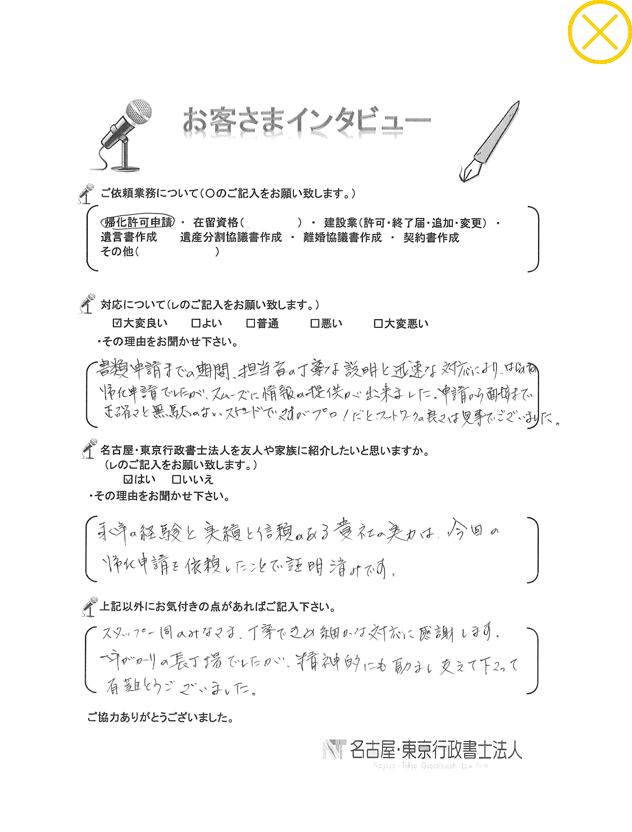 お客さまインタビュー
ご依頼業務について(〇のご記入をお願い致します。)
帰化許可申請 ・ 在留資格( ) ・ 建設業(許可・終了届・追加・変更) ・
遺言書作成 遺産分割協議書作成 ・ 離婚協議書作成 ・ 契約書作成
その他( )
対応について(レのご記入をお願い致します。)
☑大変良い □よい □普通 □悪い □大変悪い
・その理由をお聞かせ下さい。
書類申請までの期間、担当者の丁寧な説明と迅速な対応により、はじめての
帰化申請でしたが、スムーズに情報の提供が出来ました。申請から面接まで
正確さと無駄のないスピードで対応がプロ!だとフットワークの良さは見事でございました。
名古屋・東京行政書士法人を友人や家族に紹介したいと思いますか。
(レのご記入をお願い致します。)
☑はい □いいえ
・その理由をお聞かせ下さい。
長年の経験と実績と信頼のある貴社の実力は、今回の
帰化申請を依頼したことで証明済みです。
上記以外にお気付きの点があればご記入下さい。
スタッフ一同のみなさま、丁寧できめ細かな対応に感謝します。
一年がかりの長丁場でしたが、精神的にも励まし支えて下さって
有難とうございました。
ご協力ありがとうございました。
名古屋・東京行政書士法人
Nagoya - Tokyo Gyoseishoshi Law Firm